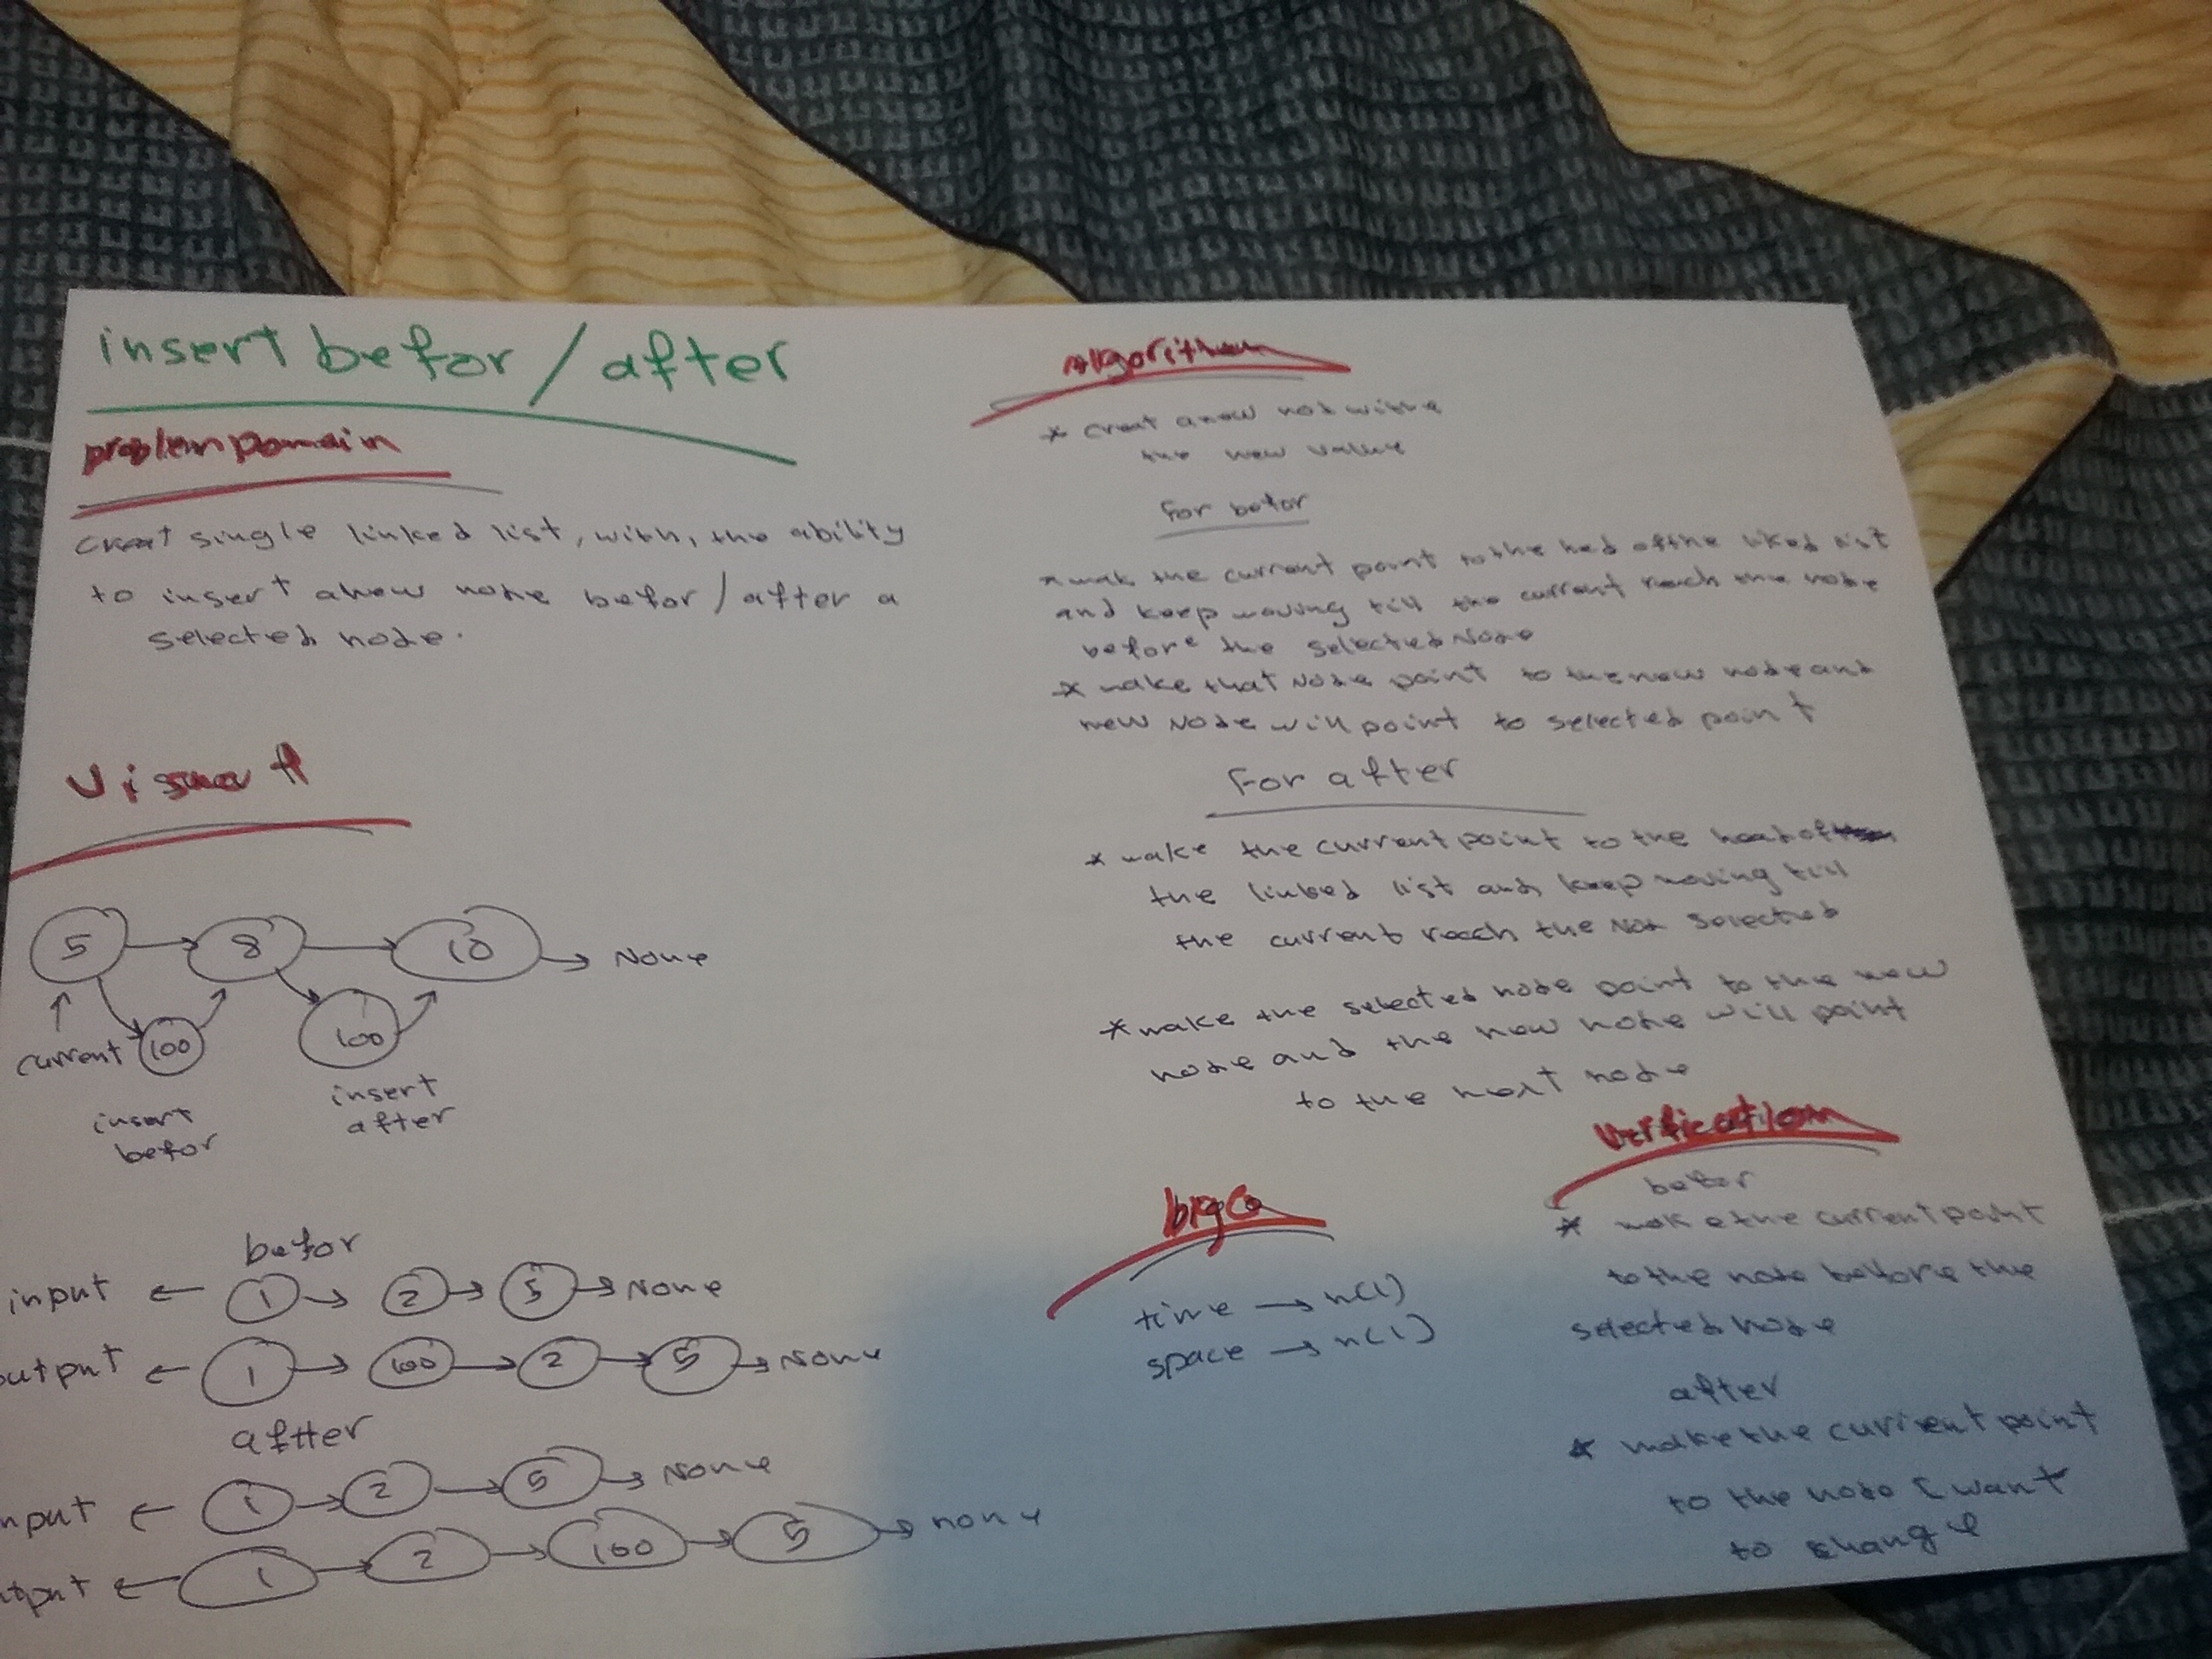 insert befor / after
problem Domain
creat single linked list, with, the ability
to insert a new node befor / after a
selected node.
Visual
5 → 8 → 10 → None
current 100 100
insert
befor
insert
after
befor
input ← 1 → 2 → 5 → None
output ← 1 → 100 → 2 → 5 → None
aftter
input ← 1 → 2 → 5 → None
output ← 1 → 2 → 100 → 5 → none
Algorithem
* creat a new nod withe
the new value
For befor
* mak the current point to the hed of the liked list
and keep moving till the current reach the node
before the selected Node
* make that Node point to the new node and
new Node will point to selected point
For after
* make the current point to the head of
the linked list and keep moving till
the current reach the Nod selected
* make the selected node point to the new
node and the new node will point
to the next node
big O
time → n(1)
space → n(1)
Verification
befor
* make the current point
to the node before the
selected node
after
* make the current point
to the node I want
to change